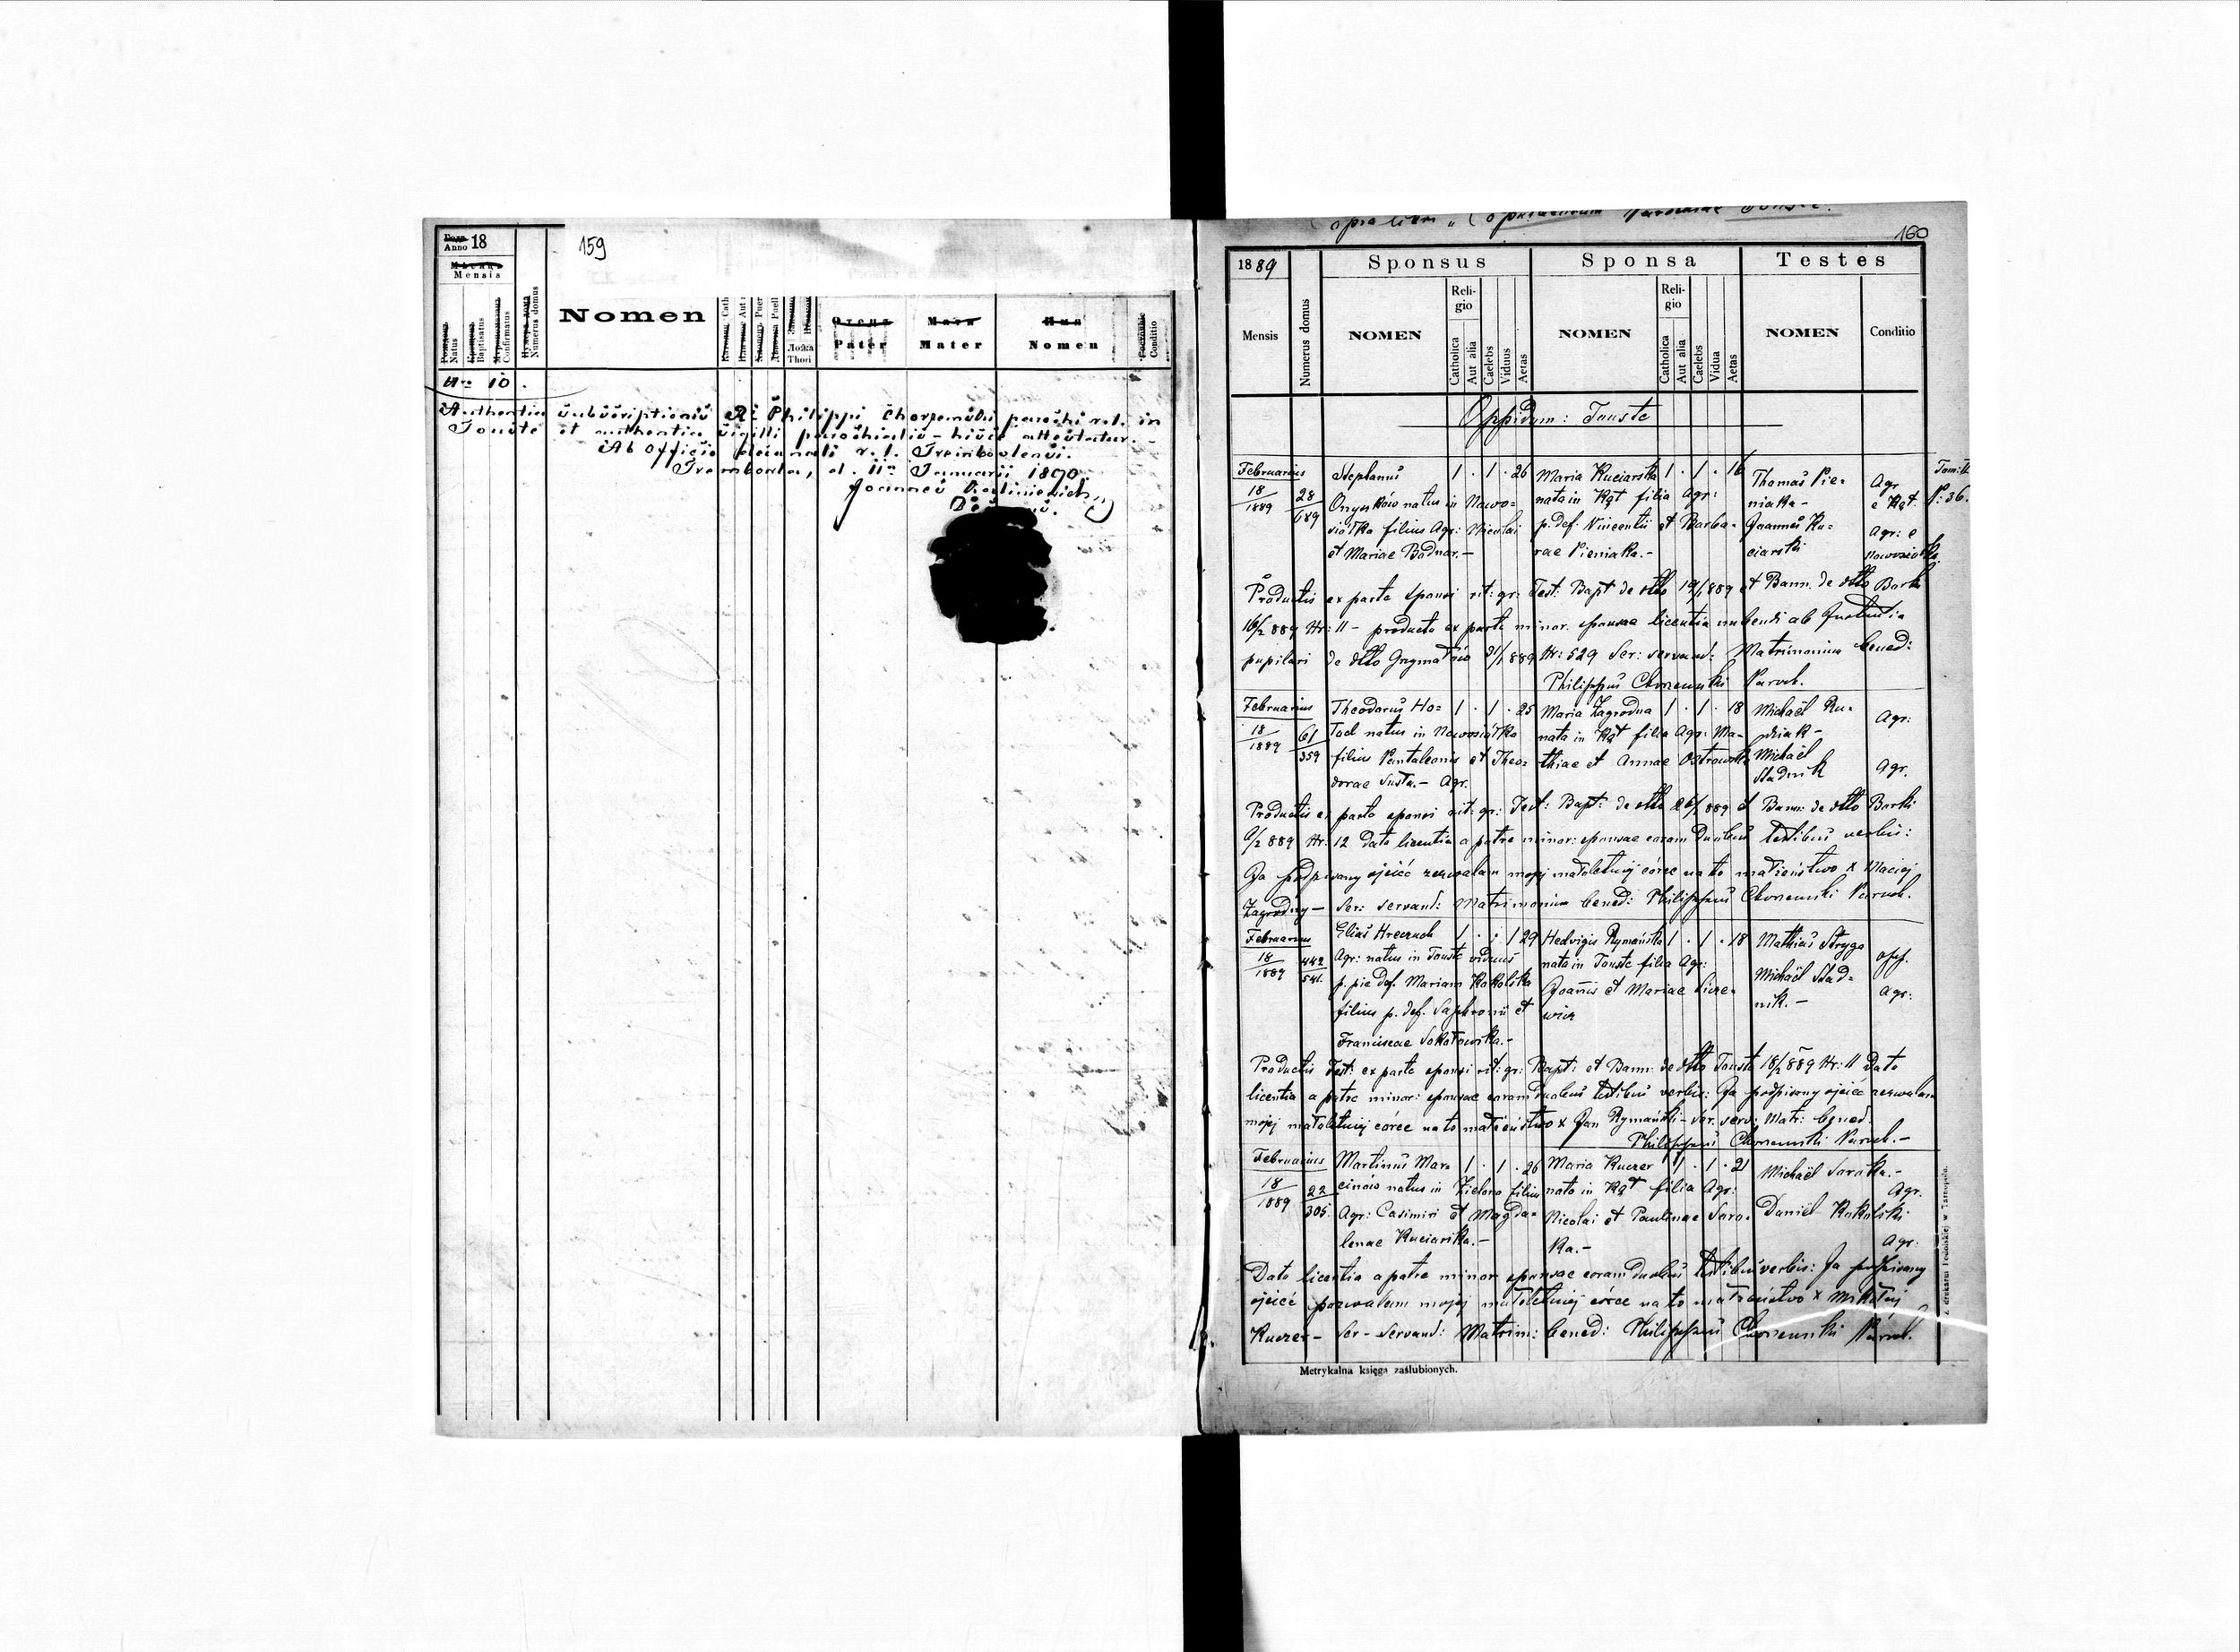 159
Anno 18
Mensis
Natus
Baptisatus
Confirmatus
Numerus domus
Nomen
Ложа
Thori
Pater
Mater
Nomen
Conditio
Nro 10.
Authentia subscriptionis Ri Philippi Chorzemski parochi r. l. in
Touste et authentia sigilli parochialis - hisce attestatur.
Ab officio decanali r. l. Trembovlensi.
Trembowla, d. 11a Januarii 1890.
Joannes
160
1889
Sponsus
Sponsa
Testes
Mensis
Numerus domus
NOMEN
Religio
Catholica
Aut alia
Caelebs
Viduus
Aetas
NOMEN
Religio
Catholica
Aut alia
Caelebs
Vidua
Aetas
NOMEN
Conditio
Oppidum: Touste
Februarius
18/1889
28/689
Stephanus 1 . 1 . 26
Onyśków natus in Nowo=
siółka filius Agr: Nicolai
et Mariae Bodnar.-
Maria Kuciarska 1 . 1 . 16
nata in Kąt filia Agr:
p. def. Vincentii et Barba=
rae Pieniaka.-
Thomas Pie=
niaka -
Joannes Ku=
ciarski
Agr
e Kąt.
Agr: e
Nowosiołka
Tom: II
P: 36.
Productis ex parte sponsi rit: gr: Test: Bapt de dtto 19/1 889 et Bann. de dtto Borki
16/2 889 Nr: 11 - producta ex parte minor. sponsae licentia nubendi ab Instantia
pupilari de dtto Grzymałów 31/1 889 Nr: 529 Ser: servand: Matrimonium bened:
Philippus Chorzemski Paroch.
Februarius
18/1889
61/359
Theodorus Ho= 1 . 1 . 25
natus in Nowosiółka
filius Pantaleonis et Theo=
dorae Susta.- Agr.
Maria Zagrodna 1 . 1 . 18
nata in Kąt filia Agr: Ma=
thiae et Annae Ostrowska
Michaël Ru=
dniak -
Michaël
Stadnik
Agr:
Agr.
Productis ex parte sponsi rit: gr: Test: Bapt: de dtto 26/1 889 et Bann: de dtto Borki
6/2 889 Nr: 12 Data licentia a patre minor: sponsae coram duobus testibus verbis:
Ja podpisany ojciec zezwalam mojej małoletniej córce na to małżeństwo x Maciej
Zagrodny - Ser: servand: Matrimonium bened: Philippus Chorzemski Paroch.
Februarius
18/1889
442/541.
Elias Hreczuch 1 . . 1 29
Agr: natus in Touste viduus
p. pie def. Mariam Kokolska
filius p. def. Saphronii et
Franciscae Sokołowska.-
Hedvigis Rymańska 1 . 1 . 18
nata in Touste filia Agr:
Joannis et Mariae
Mathias Stryga
Michaël Stad=
nik.-
opf.
Agr:
Productis Test: ex parte sponsi rit: gr: Bapt: et Bann: de dtto Touste 18/2 889 Nr: 11 Data
licentia a patre minor: sponsae coram duobus testibus verbis: Ja podpisany ojciec zezwalam
mojej małoletniej córce na to małżeństwo x Jan Rymański - Ser. serv: Matr: bened.
Philippus Chorzemski Paroch.-
Februarius
18/1889
22/305.
Martinus Mar= 1 . 1 . 26
cinów natus in Zielona filius
Agr: Casimiri et Magda=
lenae Kuciarska.-
Maria Kuczer 1 . 1 . 21
nata in Kąt filia Agr:
Nicolai et Paulinae Soro=
ka.-
Michaël Soroka.-
Agr.
Daniel Kokolski
Agr:
Data licentia a patre minor sponsae coram duobus testibus verbis: Ja podpisany
ojciec pozwalam mojej małoletniej córce na to małżeństwo x Mikołaj
Kuczer - Ser - Servand: Matrim: bened: Philippus Chorzemski Paroch.
Metrykalna księga zaślubionych.